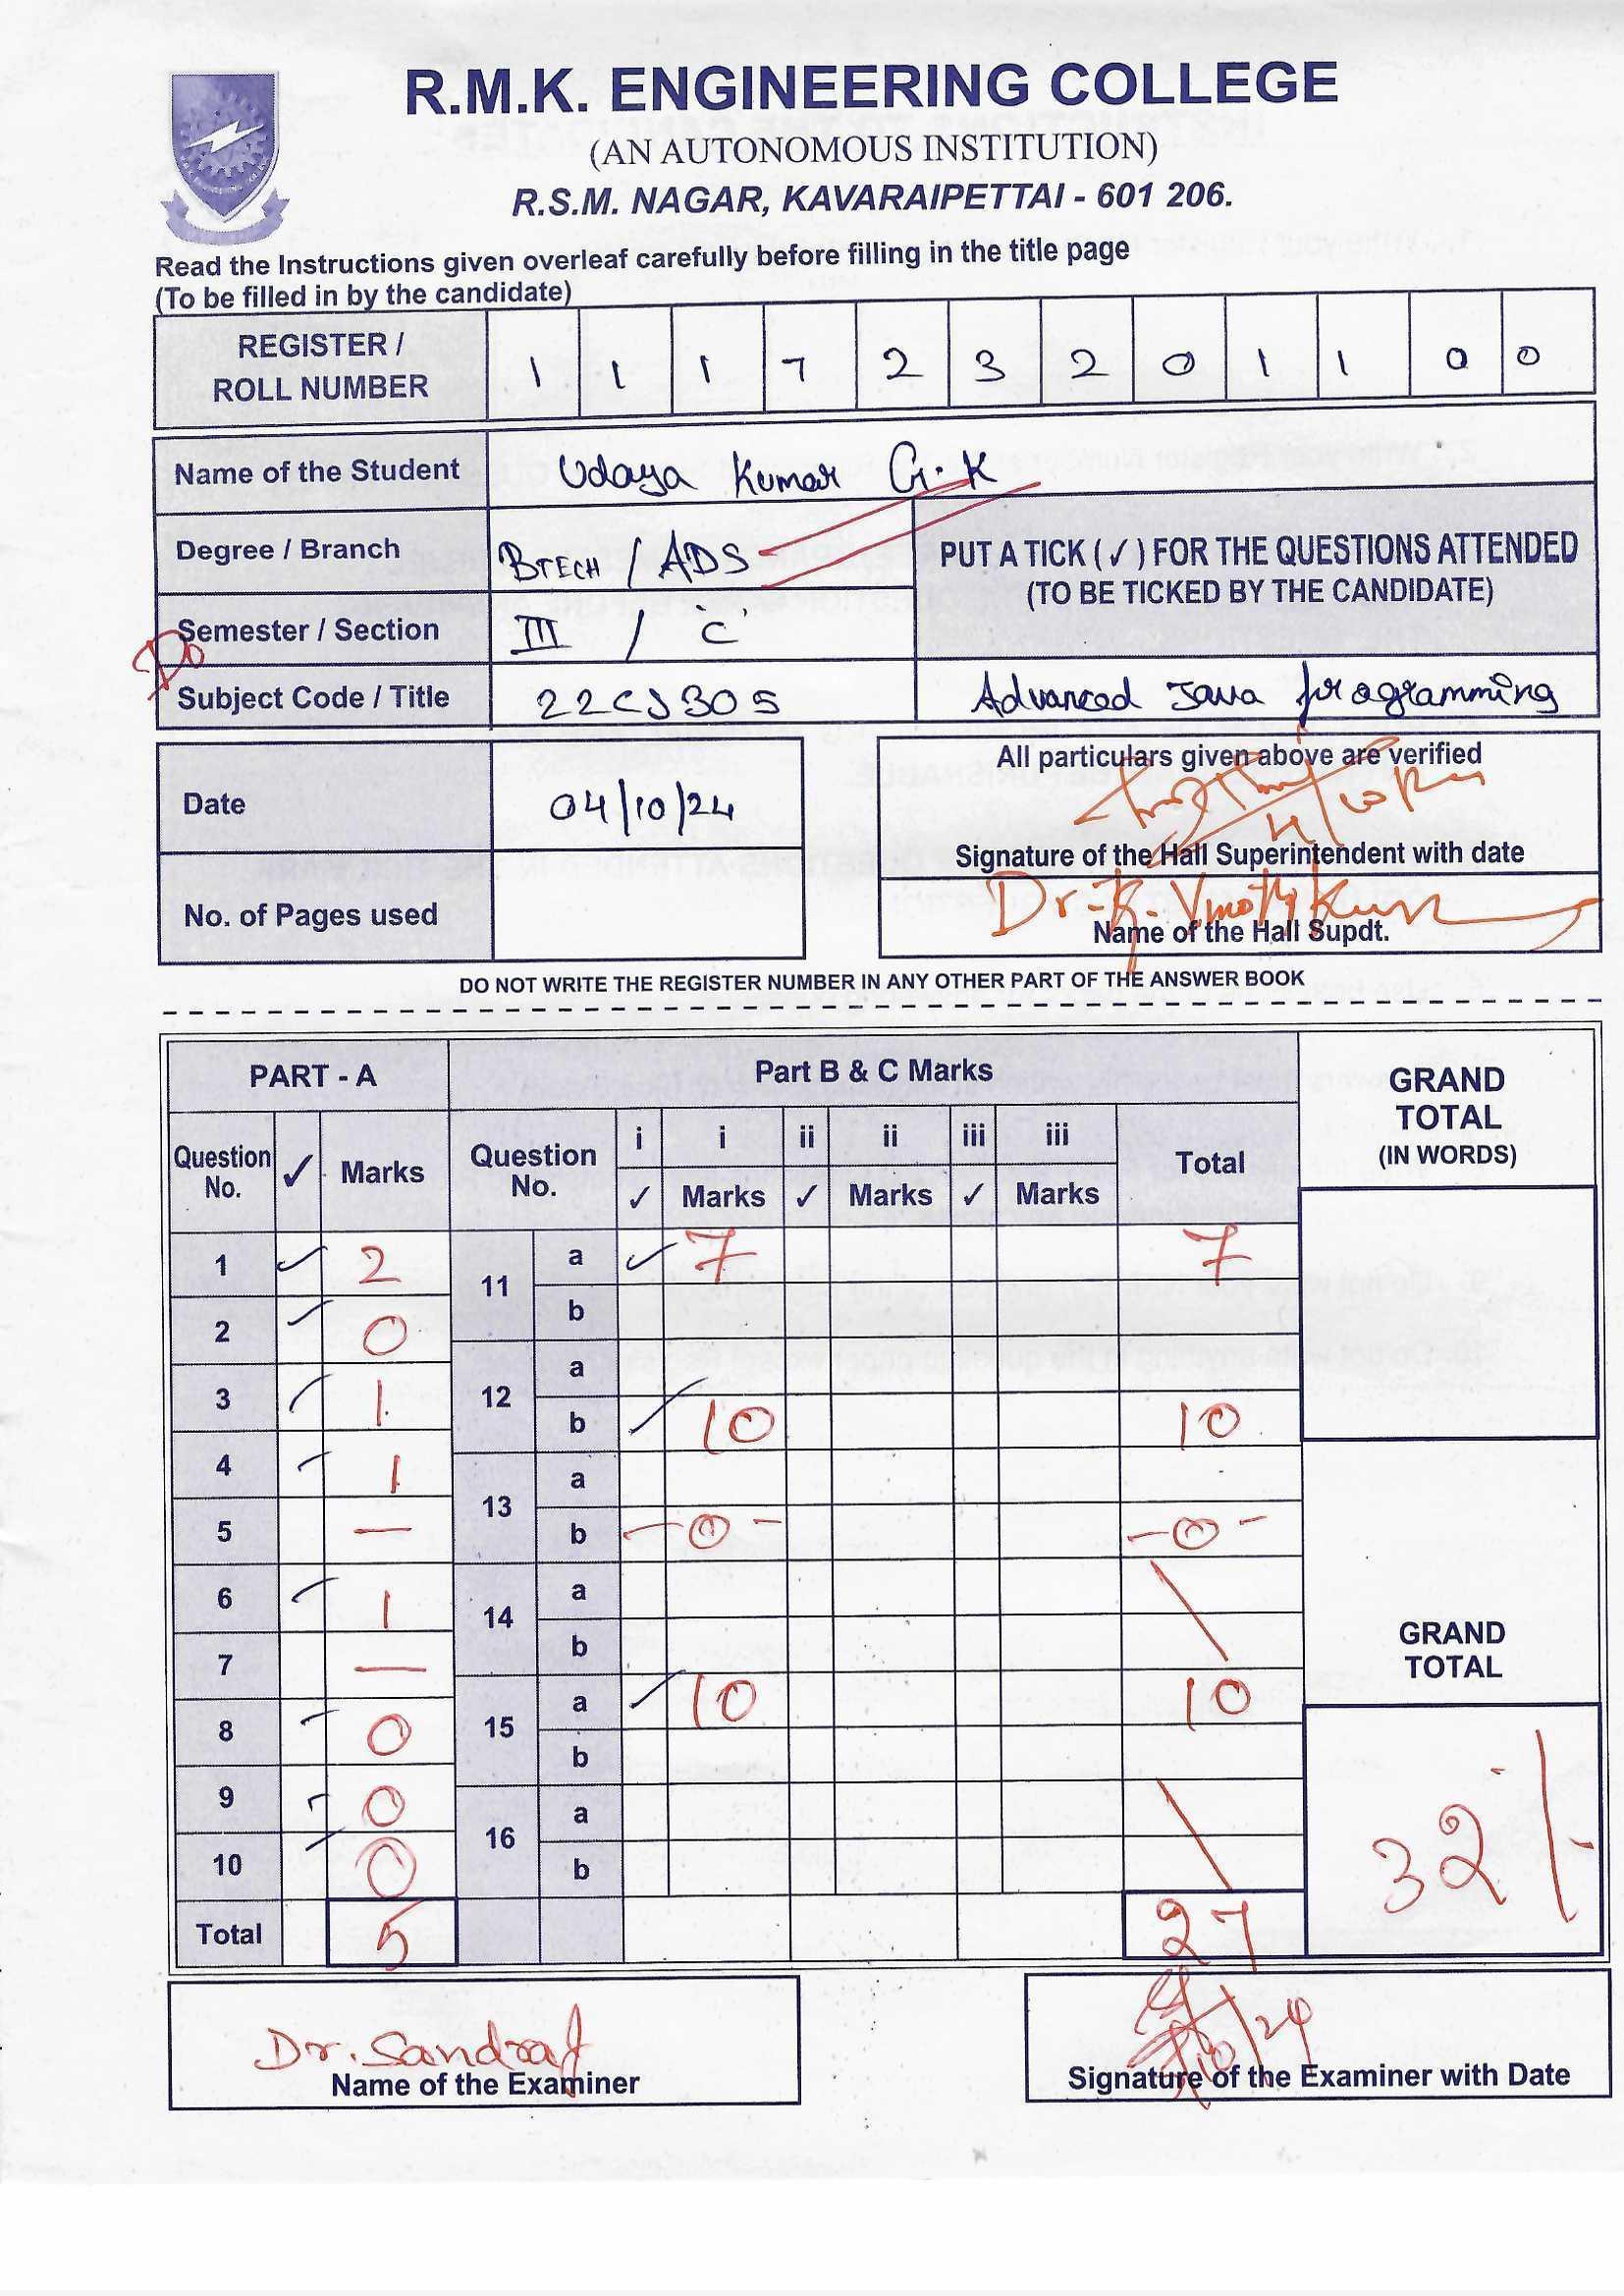 R.M.K. ENGINEERING COLLEGE
(AN AUTONOMOUS INSTITUTION)
R.S.M. NAGAR, KAVARAIPETTAI - 601 206.
Read the Instructions given overleaf carefully before filling in the title page
(To be filled in by the candidate)
REGISTER / ROLL NUMBER 1 1 1 7 2 3 2 0 1 1 0 0
Name of the Student Udaya Kumar G.K
Degree / Branch BTECH / ADS
PUT A TICK (✓) FOR THE QUESTIONS ATTENDED
(TO BE TICKED BY THE CANDIDATE)
Semester / Section III / 'C'
Subject Code / Title 22CS305 Advanced Java programming
Date 04/10/24
All particulars given above are verified
Signature of the Hall Superintendent with date
No. of Pages used
Dr. K.
Name of the Hall Supdt.
DO NOT WRITE THE REGISTER NUMBER IN ANY OTHER PART OF THE ANSWER BOOK
PART - A Part B & C Marks GRAND TOTAL (IN WORDS)
Question No. ✓ Marks Question No. i i ii ii iii iii Total
✓ Marks ✓ Marks ✓ Marks
1 ✓ 2 11 a ✓ 7 7
2 ✓ 0 b
3 ✓ 1 12 a
b ✓ 10 10
4 ✓ 1 13 a
5 — b -0- -0-
6 ✓ 1 14 a
7 — b
GRAND TOTAL
8 ✓ 0 15 a ✓ 10 10
b
9 ✓ 0 16 a
10 ✓ 0 b
32/-
Total 5 27
Dr. Sandra J
Name of the Examiner
10/24
Signature of the Examiner with Date